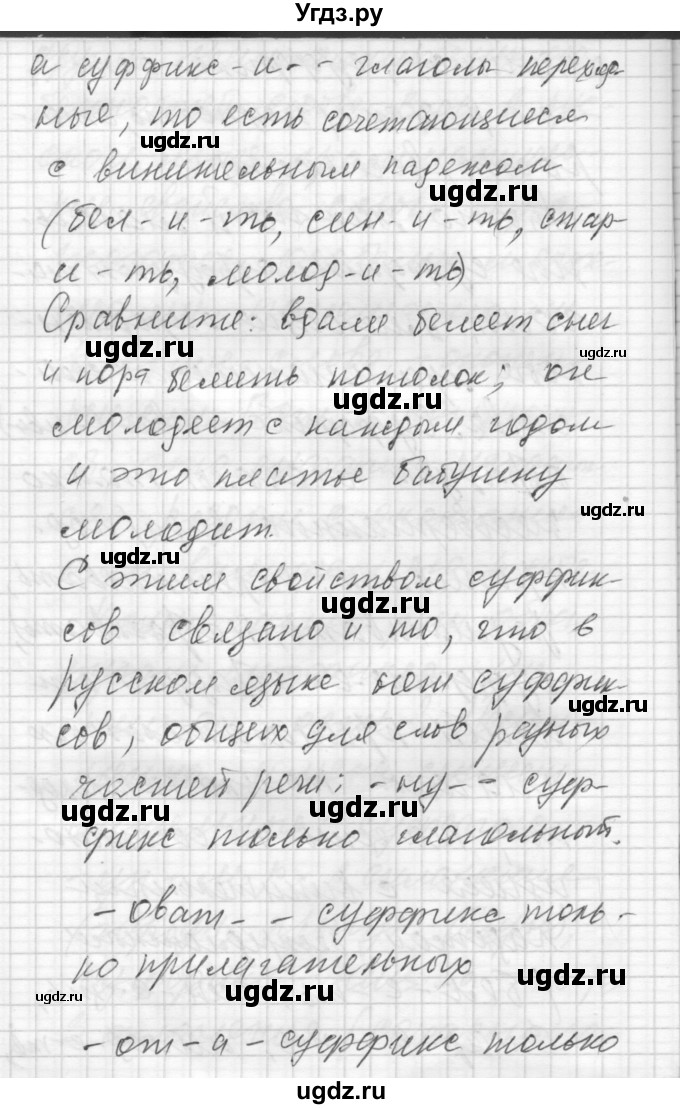 Угдз.ру
а суффикс -и- - глаголы переход
ные, то есть сочетающиеся
ugdz.ru
с винительным падежом
ugdz.ru
(бел-и-ть, син-и-ть, стар-
и-ть, молод-и-ть)
ugdz.ru
Сравните: вдали белеет снег
ugdz.ru
ugdz.ru
и пора белить потолок; он
ugdz.ru
молодеет с каждым годом
и это платье бабушку
ugdz.ru
молодит.
ugdz.ru
С этим свойством суффик-
ugdz.ru
сов связано и то, что в
русском языке нет суффик-
ugdz.ru
сов, общих для слов разных
частей речи: -ну- - суф-
ugdz.ru
ugdz.ru
фикс только глагольный.
-оват- - суффикс толь-
ко прилагательных
ugdz.ru
ugdz.ru
ugdz.ru
-от-а - суффикс только
ugdz.ru
ugdz.ru